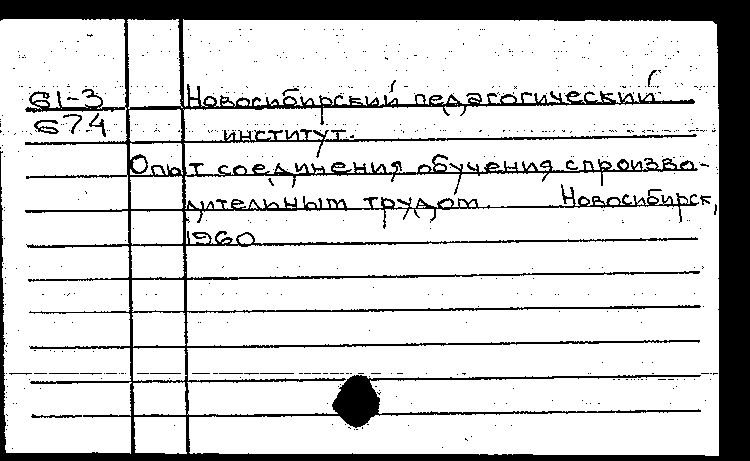 61-3 Новосибирский педагогический
674 институт.
Опыт соединения обучения с произво-
дительным трудом. Новосибирск,
1960